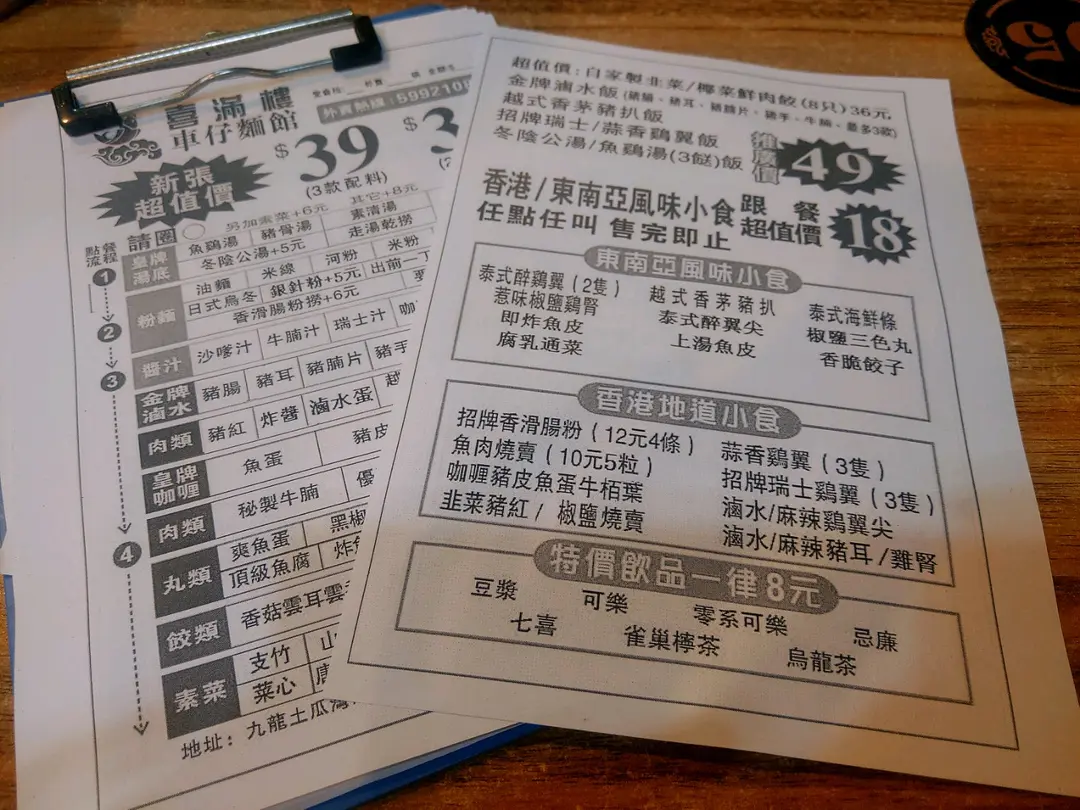 喜滿樓
車仔麵館
外賣熱線：5992108
新張
超值價
$39
(3款配料)
$3
點餐流程
請圈
另加素菜+6元 其它+8元
皇牌湯底
魚鷄湯 豬骨湯 素清湯
冬陰公湯+5元 走湯乾撈
1
粉麵
油麵 米線 河粉 米粉
日式烏冬 銀針粉+5元 出前一丁
香滑腸粉撈+6元
2
醬汁
沙嗲汁 牛腩汁 瑞士汁 咖
3
金牌滷水
豬腸 豬耳 豬腩片 豬手
肉類
豬紅 炸醬 滷水蛋 越
皇牌咖喱
魚蛋 豬皮
肉類
秘製牛腩 優
4
丸類
爽魚蛋 黑椒
頂級魚腐 炸魚
餃類
香菇雲耳雲
素菜
支竹 山
菜心
地址：九龍土瓜灣
超值價：自家製韭菜/椰菜鮮肉餃(8只)36元
金牌滷水飯(豬腸、豬耳、豬腩片、豬手、牛腩、最多3款)
越式香茅豬扒飯
招牌瑞士/蒜香鷄翼飯
冬陰公湯/魚鷄湯(3餸)飯
推廣價 49
香港/東南亞風味小食 跟餐
任點任叫 售完即止 超值價 18
東南亞風味小食
泰式醉鷄翼(2隻) 越式香茅豬扒 泰式海鮮條
惹味椒鹽鷄腎 泰式醉翼尖 椒鹽三色丸
即炸魚皮 上湯魚皮 香脆餃子
腐乳通菜
香港地道小食
招牌香滑腸粉(12元4條) 蒜香鷄翼(3隻)
魚肉燒賣(10元5粒) 招牌瑞士鷄翼(3隻)
咖喱豬皮魚蛋牛栢葉 滷水/麻辣鷄翼尖
韭菜豬紅/椒鹽燒賣 滷水/麻辣豬耳/雞腎
特價飲品一律8元
豆漿 可樂 零系可樂 忌廉
七喜 雀巢檸茶 烏龍茶